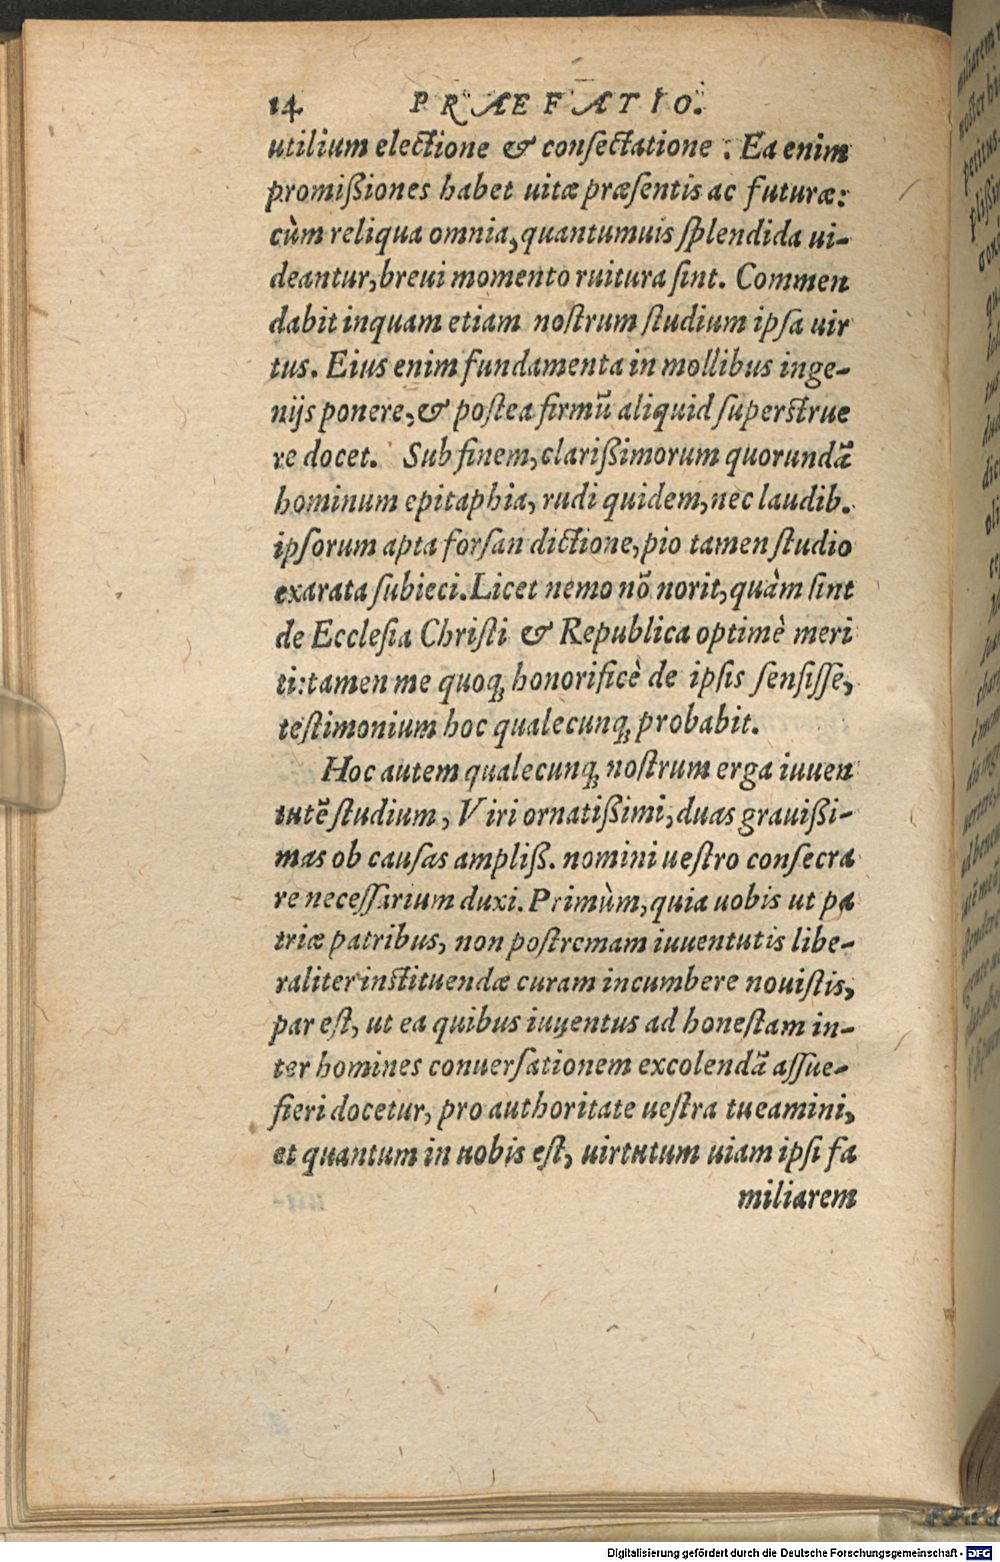 14 PRÆFATIO.
utilium electione & conſectatione. Ea enim
promißiones habet uitæ præſentis ac futuræ:
cùm reliqua omnia, quantumuis ſplendida ui-
deantur, breui momento ruitura ſint. Commen
dabit inquam etiam noſtrum ſtudium ipſa uir
tus. Eius enim fundamenta in mollibus inge-
nijs ponere, & poſtea firmũ aliquid ſuperſtrue
re docet. Sub finem, clarißimorum quorundã
hominum epitaphia, rudi quidem, nec laudib.
ipſorum apta forſan dictione, pio tamen ſtudio
exarata ſubieci. Licet nemo nõ norit, quàm ſint
de Eccleſia Chriſti & Republica optimè meri
ti: tamen me quoq; honorificè de ipſis ſenſiſſe,
teſtimonium hoc qualecunq; probabit.
Hoc autem qualecunq; noſtrum erga iuuen
tutẽ ſtudium, Viri ornatißimi, duas grauißi-
mas ob cauſas ampliß. nomini ueſtro conſecra
re neceſſarium duxi. Primùm, quia uobis ut pa
triæ patribus, non poſtremam iuuentutis libe-
raliter inſtituendæ curam incumbere nouiſtis,
par eſt, ut ea quibus iuuentus ad honeſtam in-
ter homines conuerſationem excolendã aſſue-
fieri docetur, pro authoritate ueſtra tueamini,
et quantum in uobis eſt, uirtutum uiam ipſi fa
miliarem
Digitalisierung gefördert durch die Deutsche Forschungsgemeinschaft - DFG